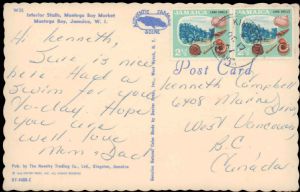 W31
Interior Stalls, Montego Bay Market
Montego Bay, Jamaica, W. I.
Hi Kenneth,
Sure is nice
here. Had a
swim for you
to-day. Hope
you are
well. love
Mom & Dad
Pub. by The Novelty Trading Co., Ltd., Kingston, Jamaica
JAMAICA
JAMAICA
Post Card
Kenneth Campbell
6408 Marine
West Vancouver
B.C.
Canada